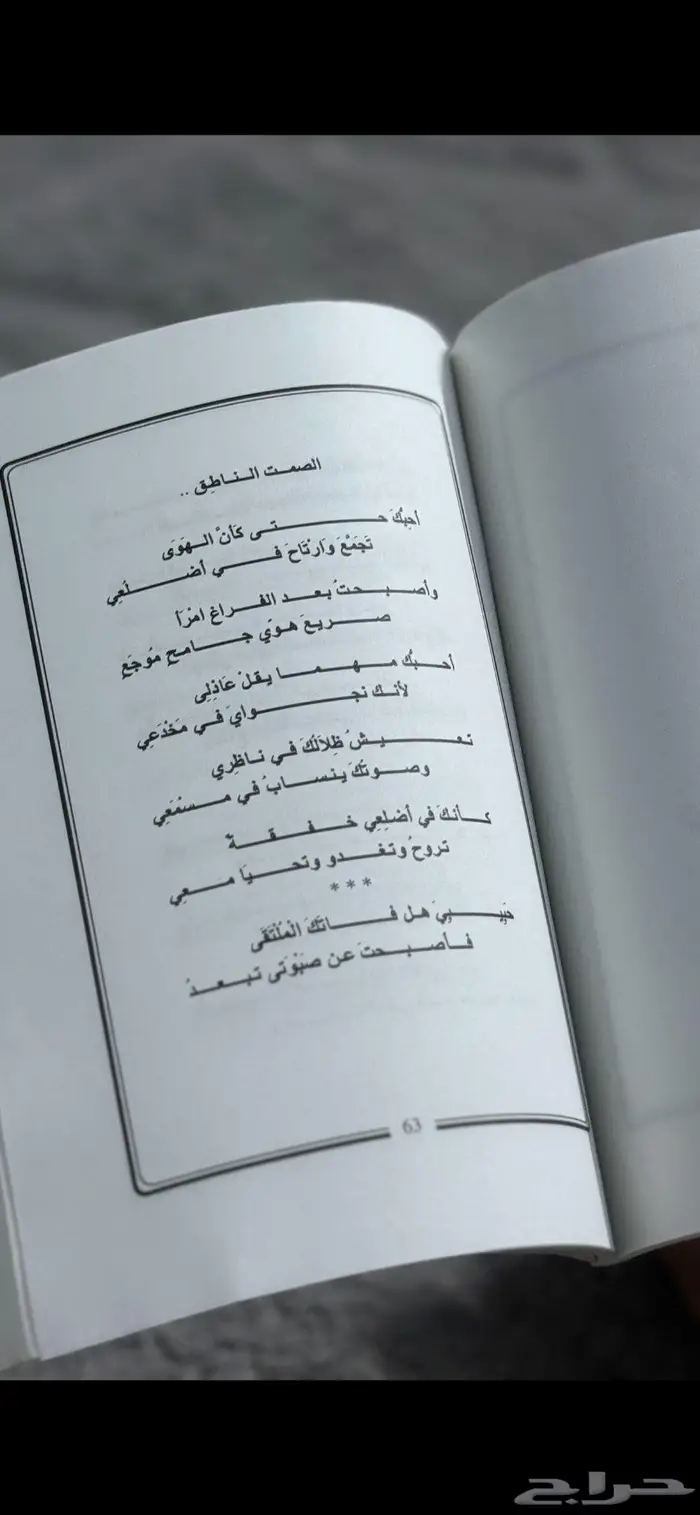 الصمت الناطق ..
أحبُّكَ حتى كَأنَّ الهَوَى
تَجَمَّعَ وَارْتَاحَ في أضلُعِي
وأصبحتُ بعد الفراغ امْرَأ
صريعَ هوًى جامحٍ مُوجَعِ
أحبُّك مهما يقلْ عَاذِلِى
لأنك نجوايَ في مَخْدَعِي
تعيشُ ظِلاَلَكَ في ناظِرِي
وصوتُكَ ينسابُ في مسْمَعِي
كأنكَ في أضلعِي خفقةٌ
تروحُ وتغدو وتحيَا معِي
***
حَبِيبِيَ هل فاتَكَ الْمُلْتَقَى
فأصبحتَ عن صَبْوَتى تبعدُ
63
حراج